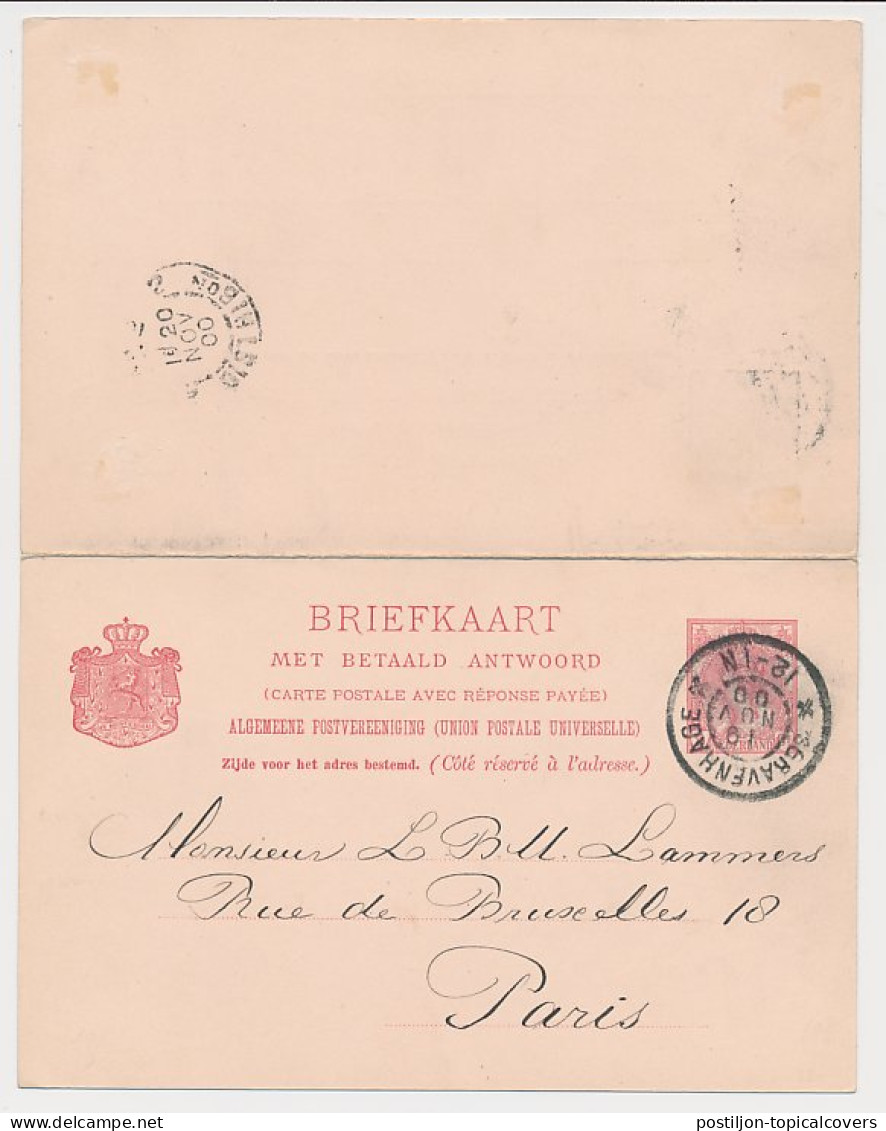 DISTRIBON
1E 20
NOV
00
BRIEFKAART
MET BETAALD ANTWOORD
(CARTE POSTALE AVEC RÉPONSE PAYÉE)
ALGEMEENE POSTVEREENIGING (UNION POSTALE UNIVERSELLE)
Zijde voor het adres bestemd. (Côté réservé à l'adresse.)
'SGRAVENHAGE
12-1N
NOV
00
Monsieur L. B. U. Lammers
Rue de Bruxelles 18
Paris
postiljon-topicalcovers